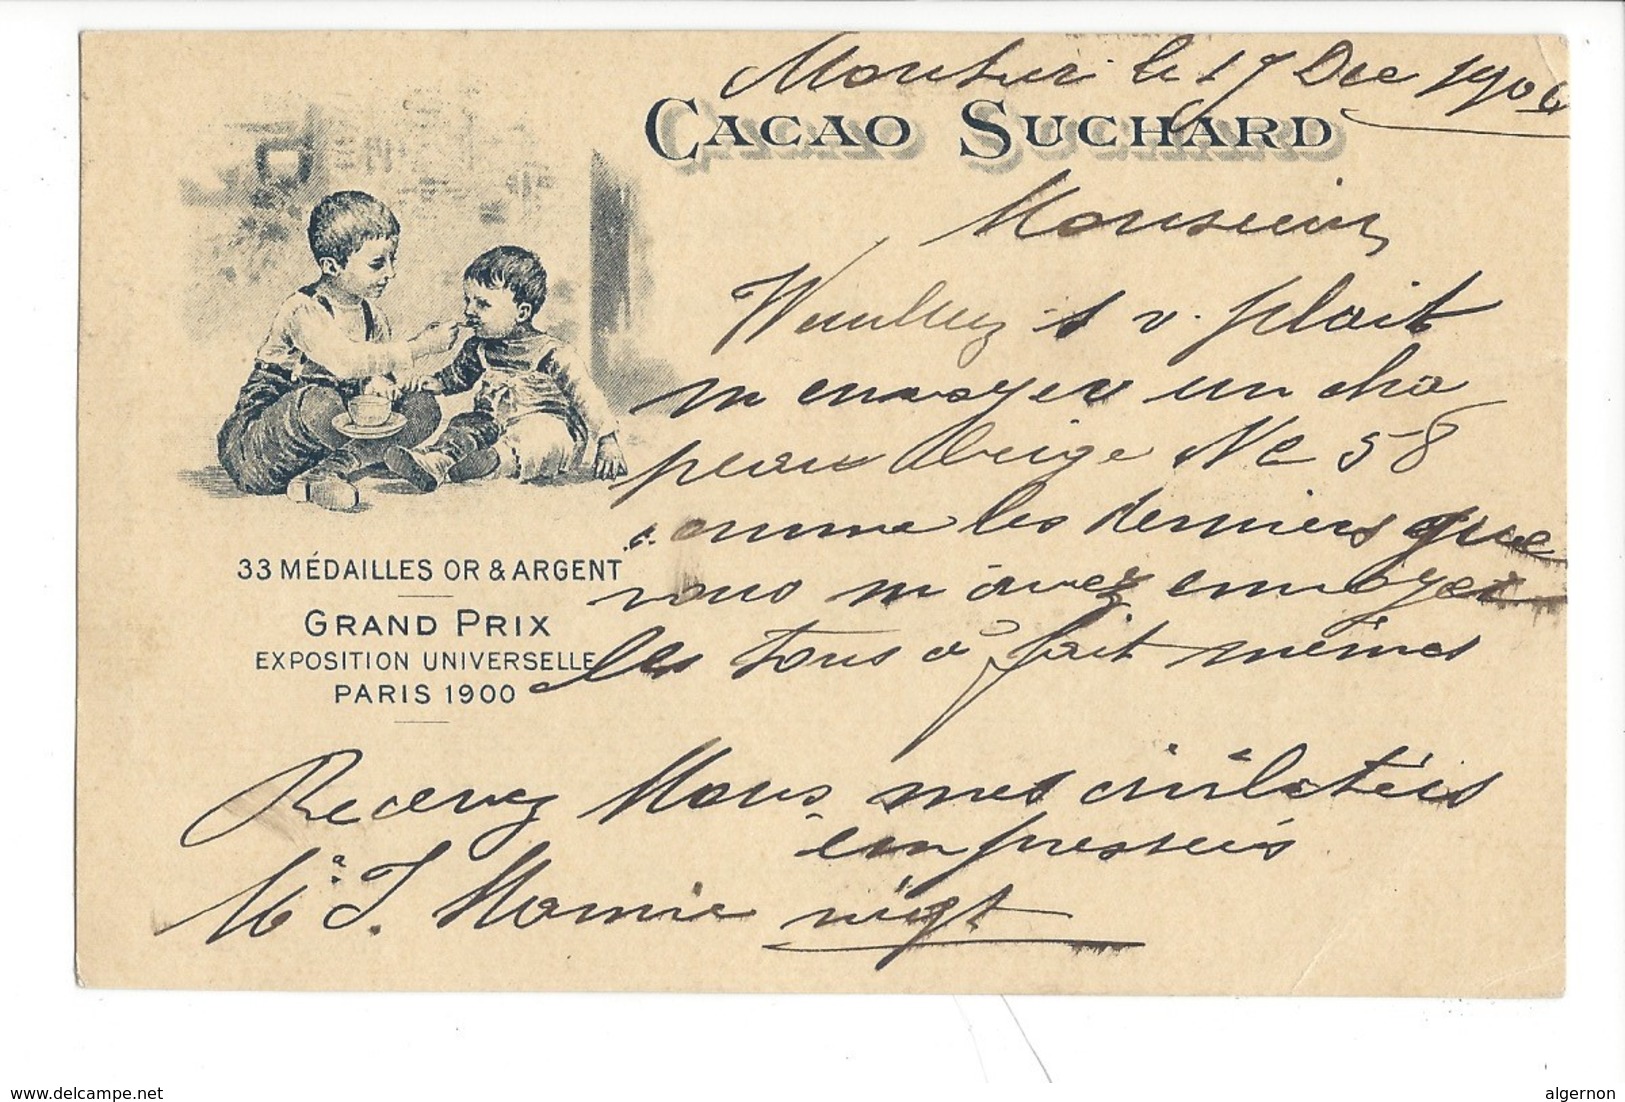 Moutier le 17 Dec 1906
CACAO SUCHARD
Monsieur
Veuillez s v. plait
m envoyer un cha
peau beige Nº 58
comme les derniers que
vous m avez envoyer
les tous à fait mêmes
33 MÉDAILLES OR & ARGENT
GRAND PRIX
EXPOSITION UNIVERSELLE
PARIS 1900
Recevez Mons. mes civilités
empressés
J.
delcampe.net
algernon